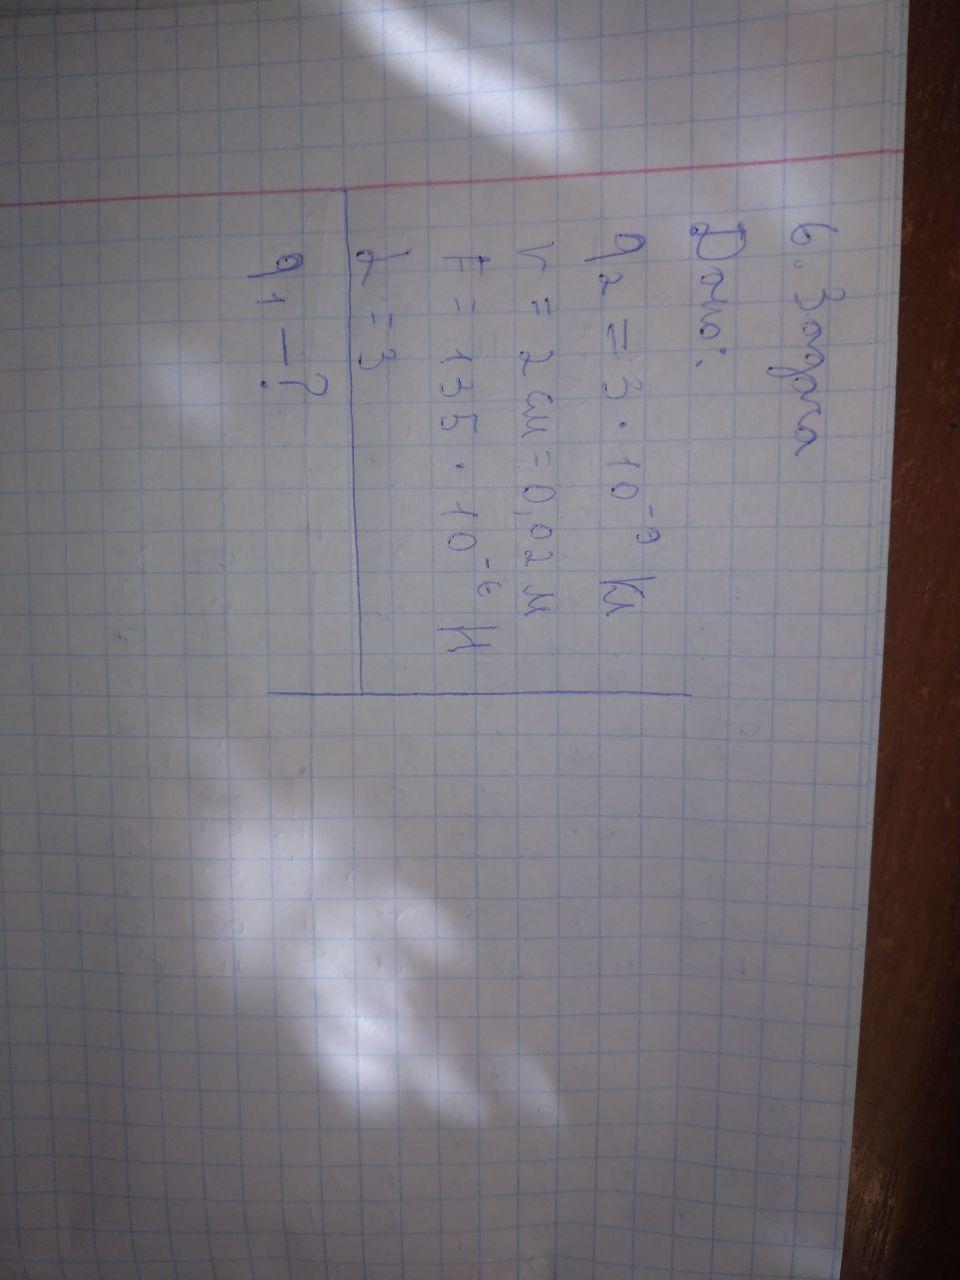 6. Задача
Дано:
q₂ = 3 · 10⁻⁹ Кл
r = 2 см = 0,02 м
F = 135 · 10⁻⁶ Н
d = 3
q₁ – ?